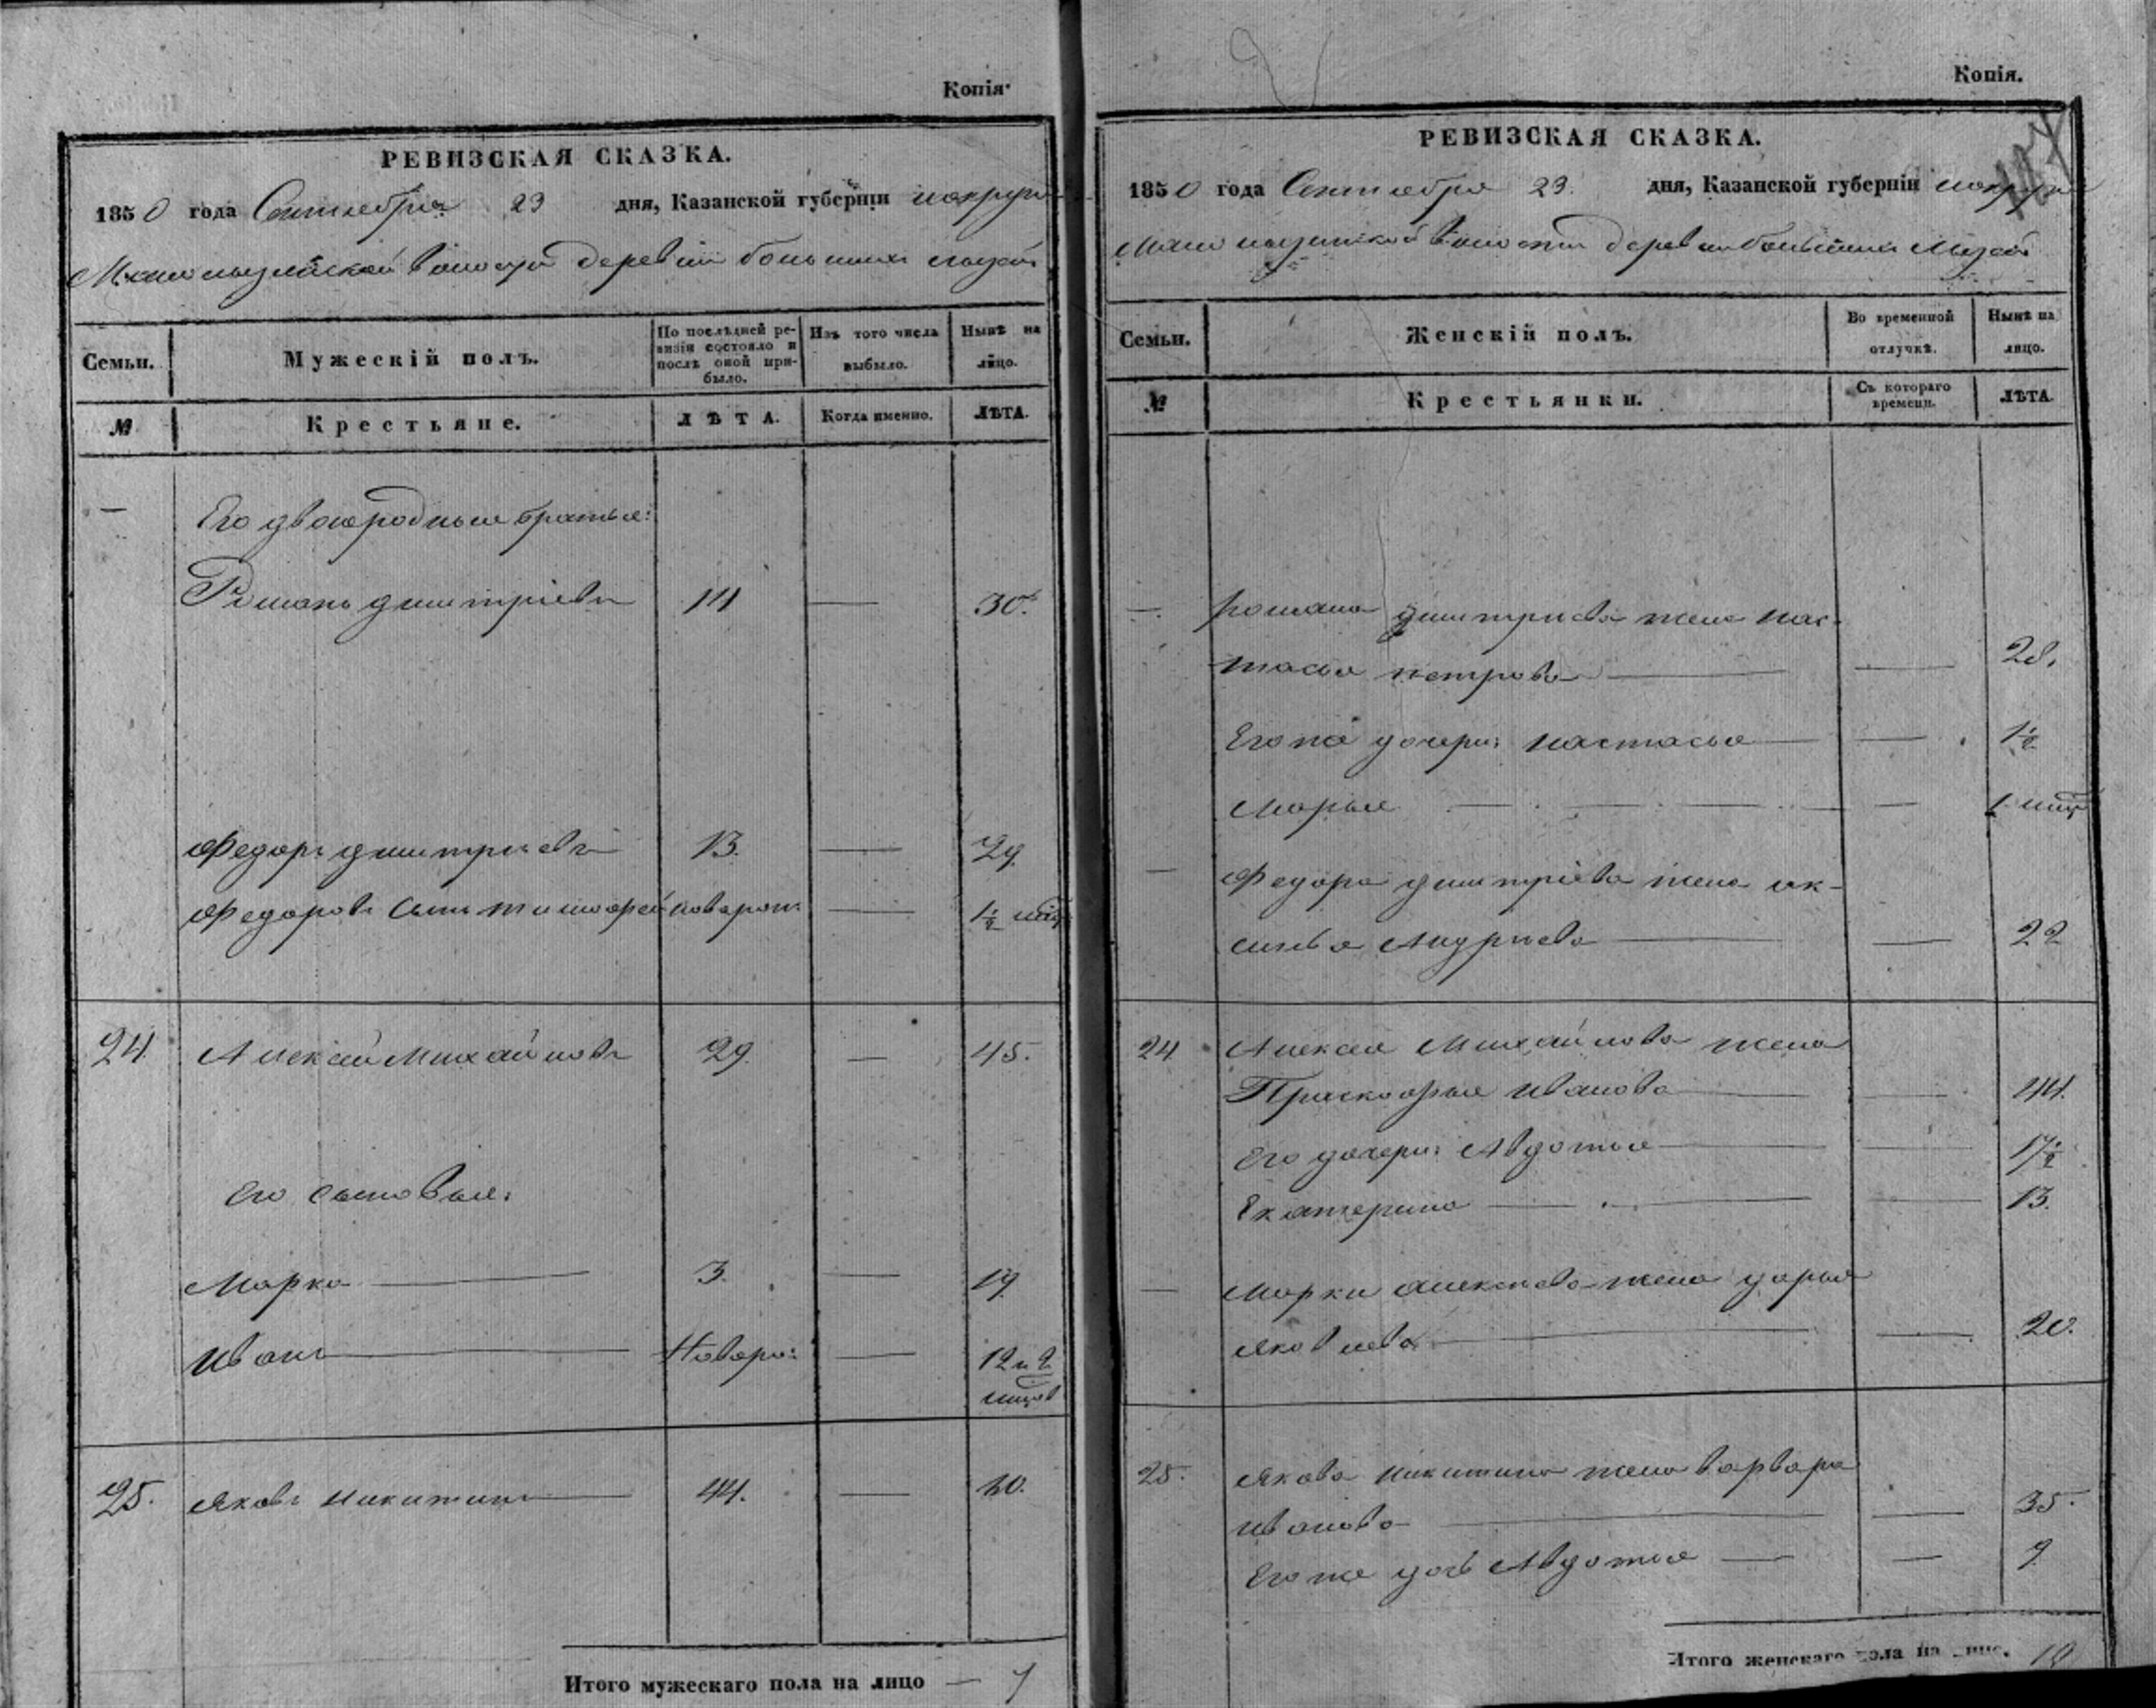 Копія.
РЕВИЗСКАЯ СКАЗКА.
1850 года Сентября 23 дня, Казанской губерніи
волости деревни большихъ
Семьи. Мужескій полъ. По послѣдней ревизіи состояло и послѣ оной прибыло. Изъ того числа выбыло. Нынѣ на лицо.
№ Крестьяне. ЛѢТА. Когда именно. ЛѢТА.
— Его двоюродные братья:
Романъ Дмитріевъ 14 — 30.
Федоръ Дмитриевъ 13. — 29.
Федоровъ сынъ Тимофей новорож: — 1½
24. Алексѣй Михайловъ 29. — 45.
Его сыновья:
Марка — 3. — 19.
Иванъ — Новоро: — 12 и 2
25. Яковъ Никитинъ — 44. —
Итого мужескаго пола на лицо — 7
Копія.
РЕВИЗСКАЯ СКАЗКА.
1850 года Сентября 23. дня, Казанской губерніи
волости деревни большихъ
Семьи. Женскій полъ. Во временной отлучкѣ. Нынѣ на лицо.
№ Крестьянки. Съ котораго времени. ЛѢТА.
— Романа Дмитриева жена Нас-
тасья Петрова — — 28.
Его же дочери: Настасья — — 1½
Марья — —
— Федора Дмитріева жена Ак-
синья Андриева — — 22
24 Алексея Михайлова жена
Прасковья Иванова — — 44.
Его дочери: Авдотья — — 17½
Екатерина — — 13.
— Марки Алексеева жена Дарья
Яковлева — — 20.
25. Якова Никитина жена Варвара
Иванова — — 35.
Его же дочь Авдотья — — 9.
Итого женскаго пола на лицо. 10